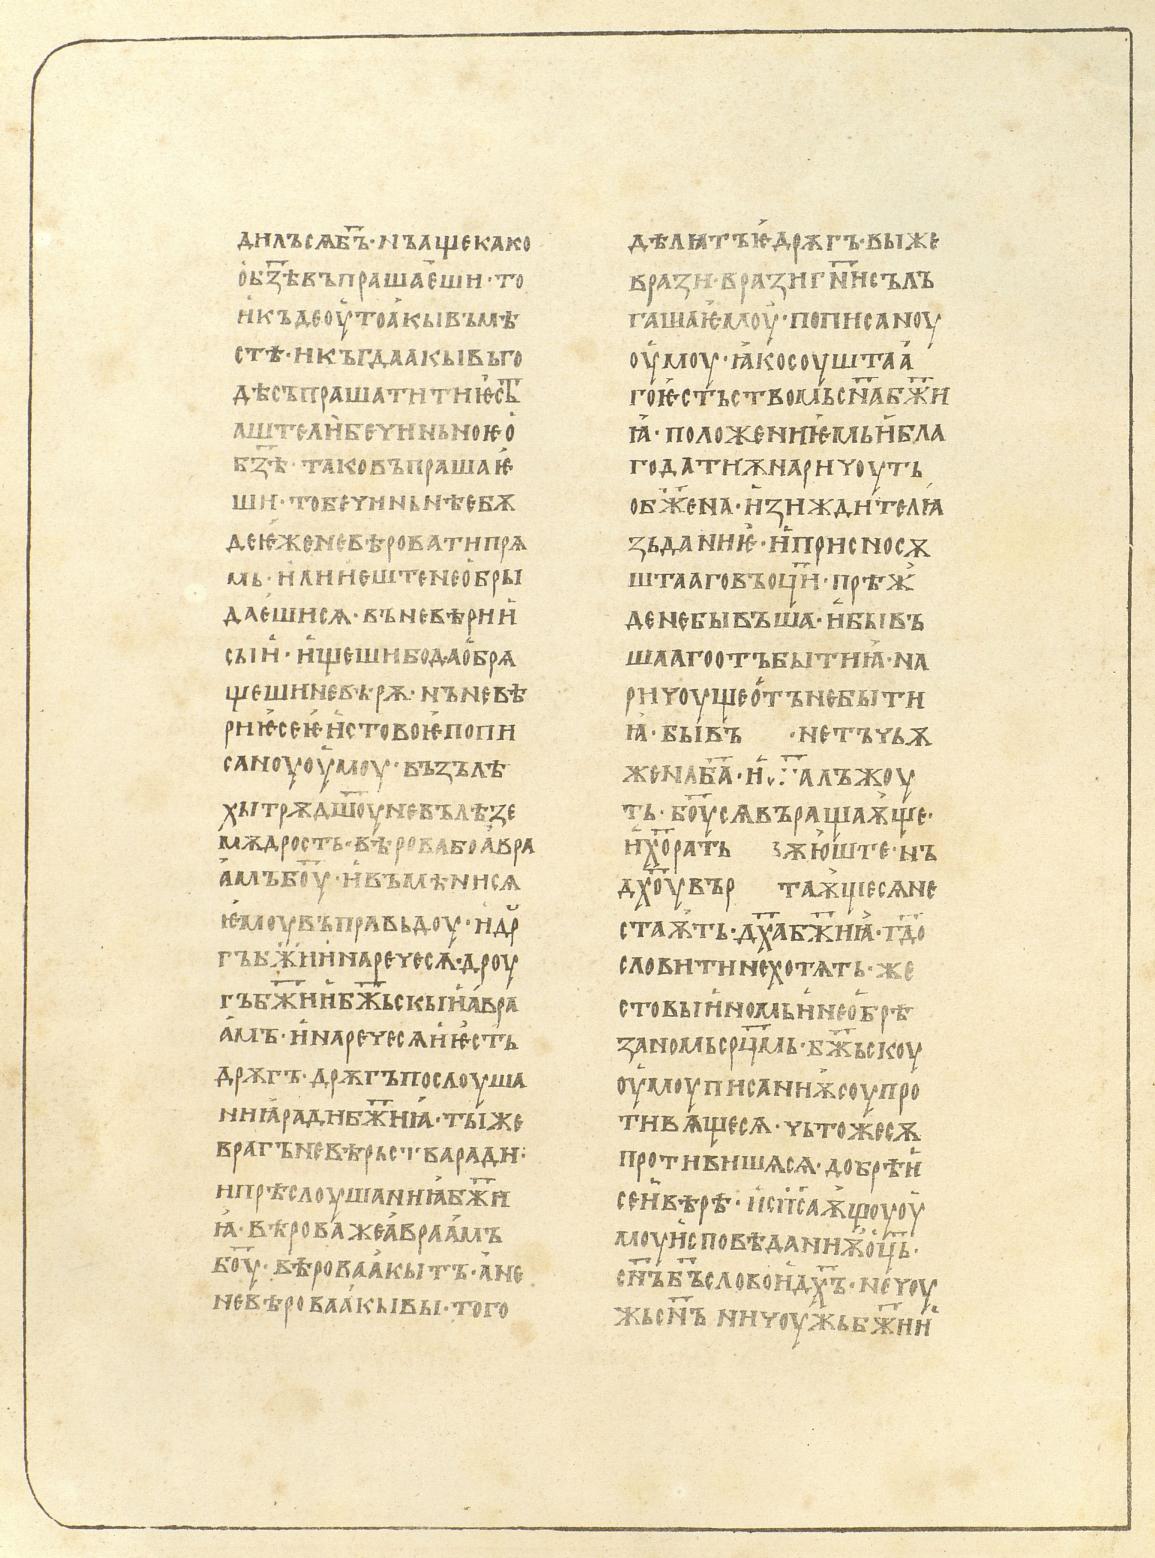 дилъсѧб҃ъ·нъащекако
обз҃ѣвъпрашаеши·то
икъдеоутоакывъмѣ
стѣ·нкъгдаакывьго
дѣсъпрашатитиѥст҃ь
аштелибечиньноѥо
бз҃ѣ·таковъпрашаѥ
ши·тобечиньнѣебѫ
деѥженевѣроватипрѧ
мь·илииештенеобры
даешисѧ·въневѣрии
сыи·ищешибодаобрѧ
щешиневѣрѫ·нъневѣ
рниѥсеѥистовоѥпопи
саноуоумоу·възълѣ
хытрѫдш҃оуневълѣзе
мѫдрость·вѣровабоавра
амъбо҃у·ивъмѣнисѧ
ѥмоувъправьдоу·идрꙋ
гъбж҃иинаречесѧ·дроу
гъбж҃иибж҃ьскыиавра
амъ·инаречесѧиѥсть
дрѫгъ·дрѫгъпослоуша
ниꙗрадибж҃ниꙗ·тыже
врагъневѣрьствaради·
ипрѣслоушаниꙗбж҃и
ꙗ·вѣроважеавраамъ
бо҃у·вѣроваакытъ·ане
невѣроваакывы·того
дѣлꙗтъѥдрѫгъ·выже
врази·вразигн҃исълъ
гашаѥмоу·пописаноу
оумоу·ꙗкосоуштаа
гоѥстьствомьсн҃абж҃и
ꙗ·положениѥмьибла
годатиѭнаричоуть
обж҃ена·изиждителꙗ
зьданиѥ·иприсносѫ
штааговъоц҃и·прѣж
денебывъша·ибывъ
шаагоотъбытиꙗ·на
ричоущеотънебыти
ꙗ·бывъ ·нетъчьѭ
женаба҃·и алъжоу
ть·бо҃усѧвъращаѭще·
их҃оратъ зѫюште·нъ
дх҃оувър таѭщесѧне
стаѭть·дх҃абж҃ниꙗ·гд҃о
словитинехотѧть·же
стовыиномьинеобрѣ
заномьсрц҃мь·бж҃ьскоу
оумоуписаниѭсоупро
тивѧщесѧ·чьтожесѫ
противишѧсѧ·добрѣи
сеивѣрѣ·исп҃саѭщоуоу
моуисповѣданиѭоц҃ь·
сн҃ъб҃ъсловоидх҃ъ·нечоу
жьсн҃ъ ничоужьбж҃ии